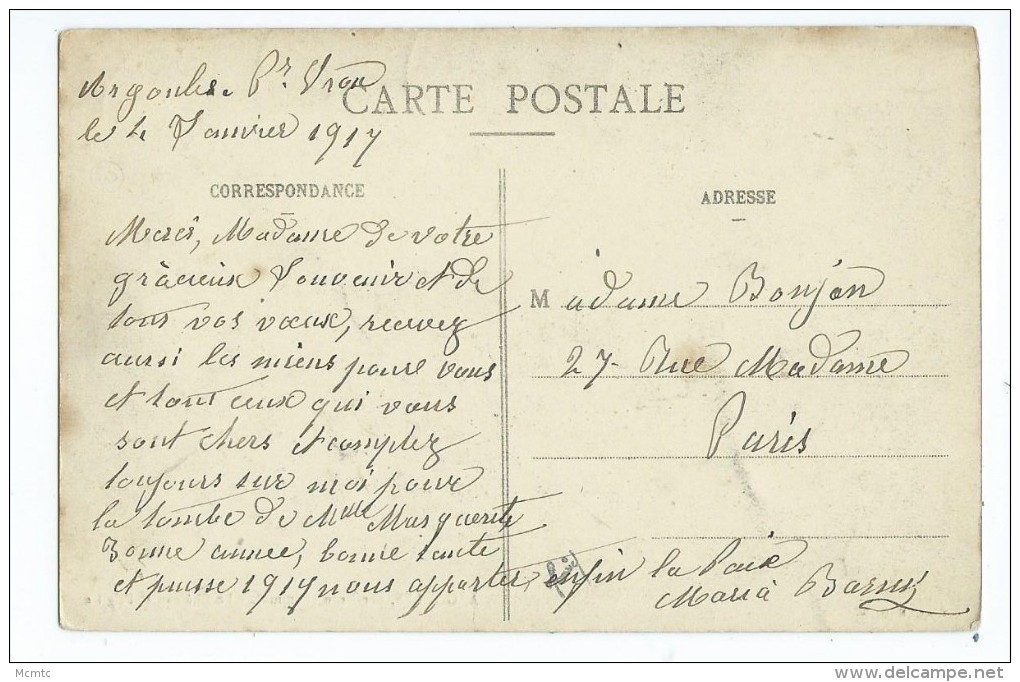 Argoules. Pr. Vron
le 4 Janvier 1917
CARTE POSTALE
CORRESPONDANCE
Merci, Madame de votre
grâcieux Souvenir et de
tous vos vœux, recevez
aussi les miens pour vous
et tout ceux qui vous
sont chers et comptez
toujours sur moi pour
la tombe de Mlle Marguerite
Bonne année, bonne santé
et puisse 1917 nous apporter enfin la Paix
Maria
ADRESSE
Madame Bonjan
27 - Rue Madame
Paris
Mcmtc
www.delcampe.net